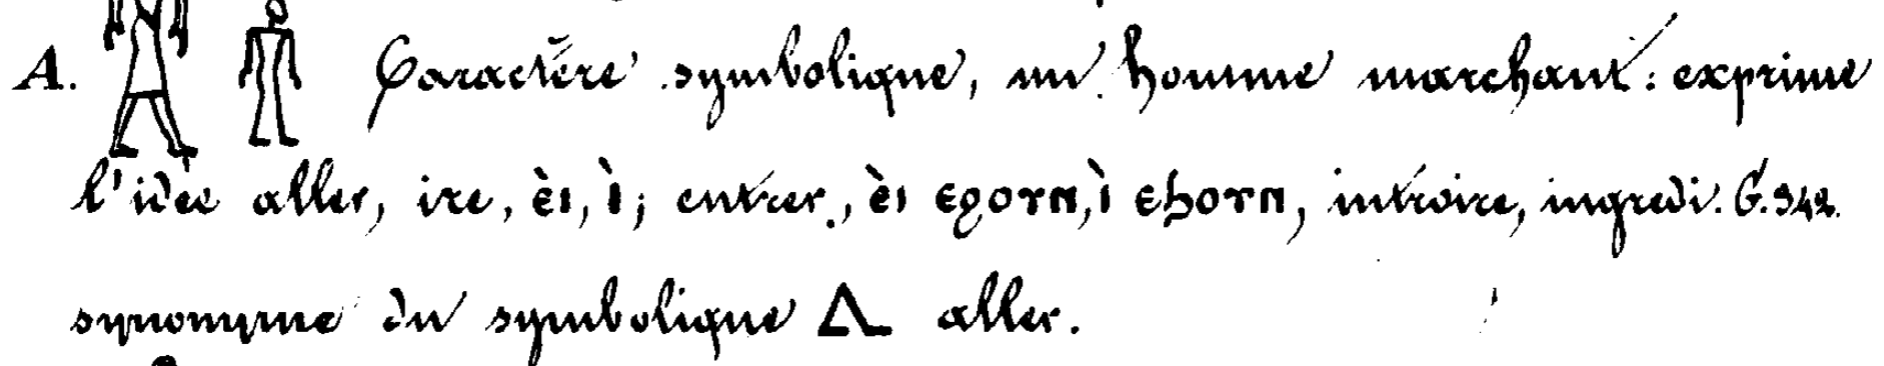 A. Caractère symbolique, un homme marchant: exprime
l'idée aller, ire, ⲉ̀ⲓ, ⲓ̀; entrer, ⲉ̀ⲓ ⲉϩⲟⲩⲛ, ⲓ̀ ⲉϧⲟⲩⲛ, introire, ingredi. G. 342.
synonyme du symbolique 𓂻 aller.